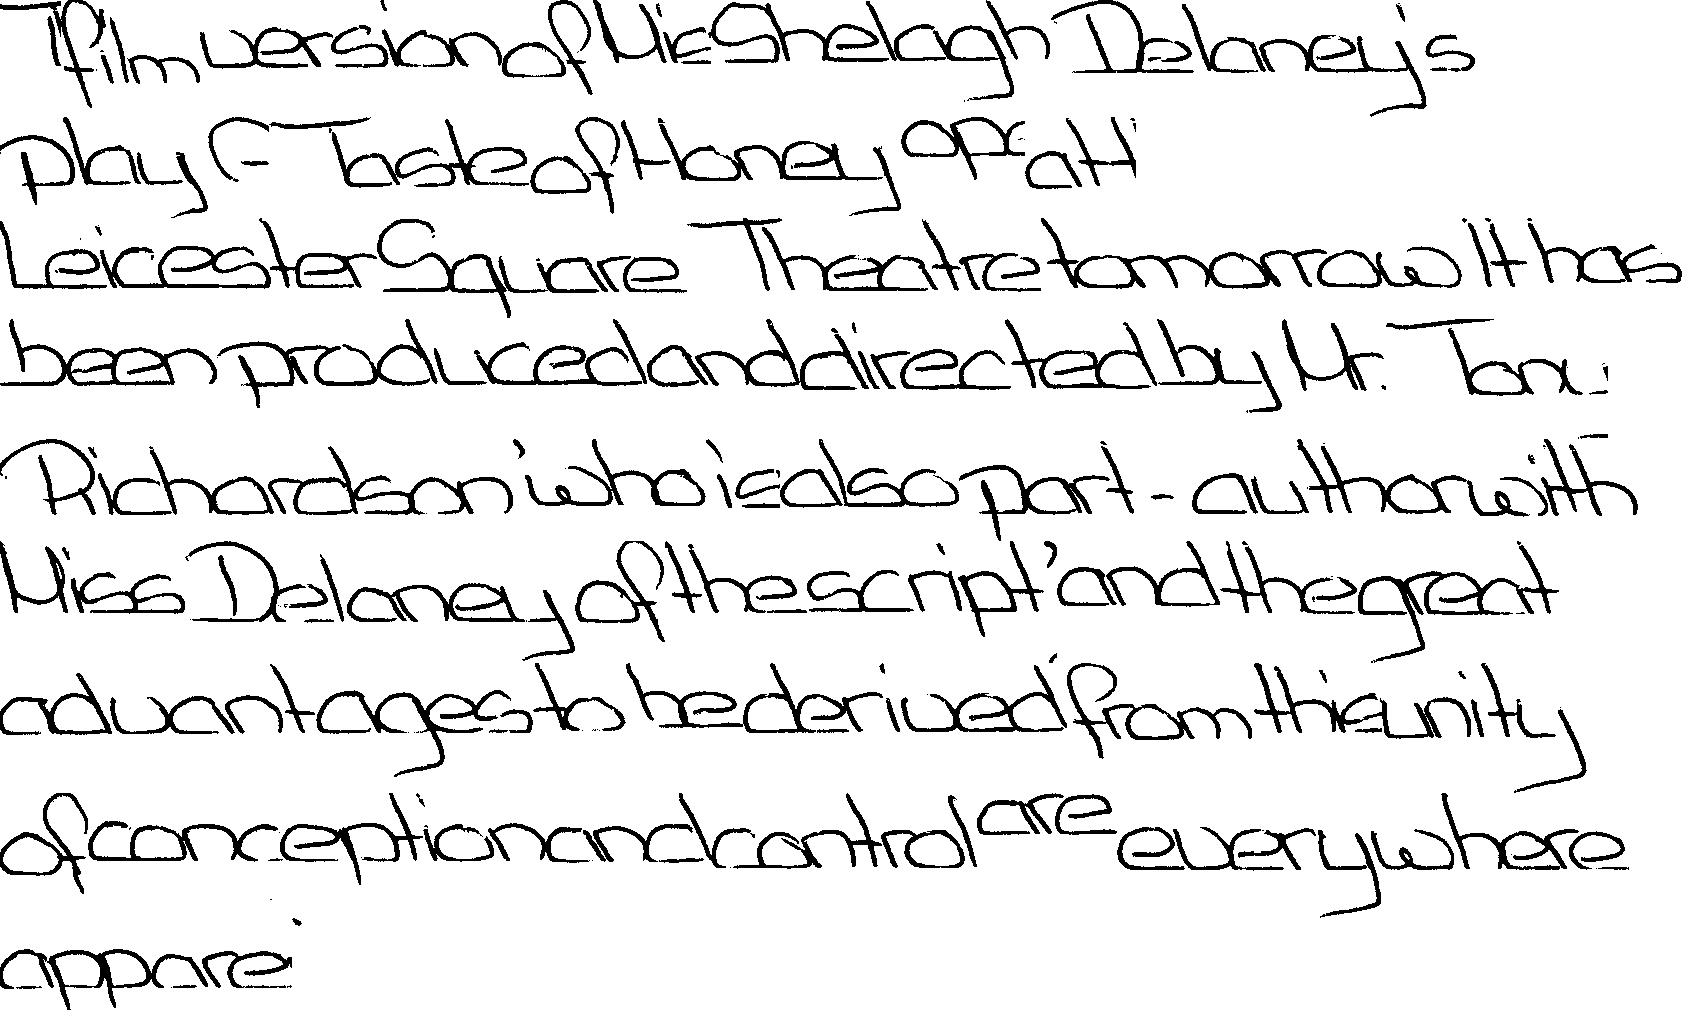 film version of Miss Shelagh Delaney's
play Taste of Honey at
Leicester Square Theatre tomorrow It has
been produced and directed by Mr. Tony
Richardson 'who is also part - author with
Miss Delaney of the script' and the great
advantages to be derived from this unity
of conception and control are everywhere
appare